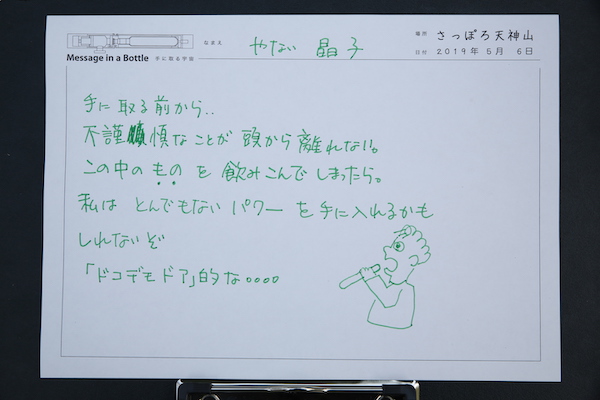 Message in a Bottle 手に取る宇宙
なまえ やない 晶子
場所 さっぽろ天神山
日付 2019年 5月 6日
手に取る前から..
不謹慎なことが頭から離れない。
この中のものを飲みこんでしまったら。
私はとんでもないパワーを手に入れるかも
しれないぞ
「ドコデモドア」的な。。。。